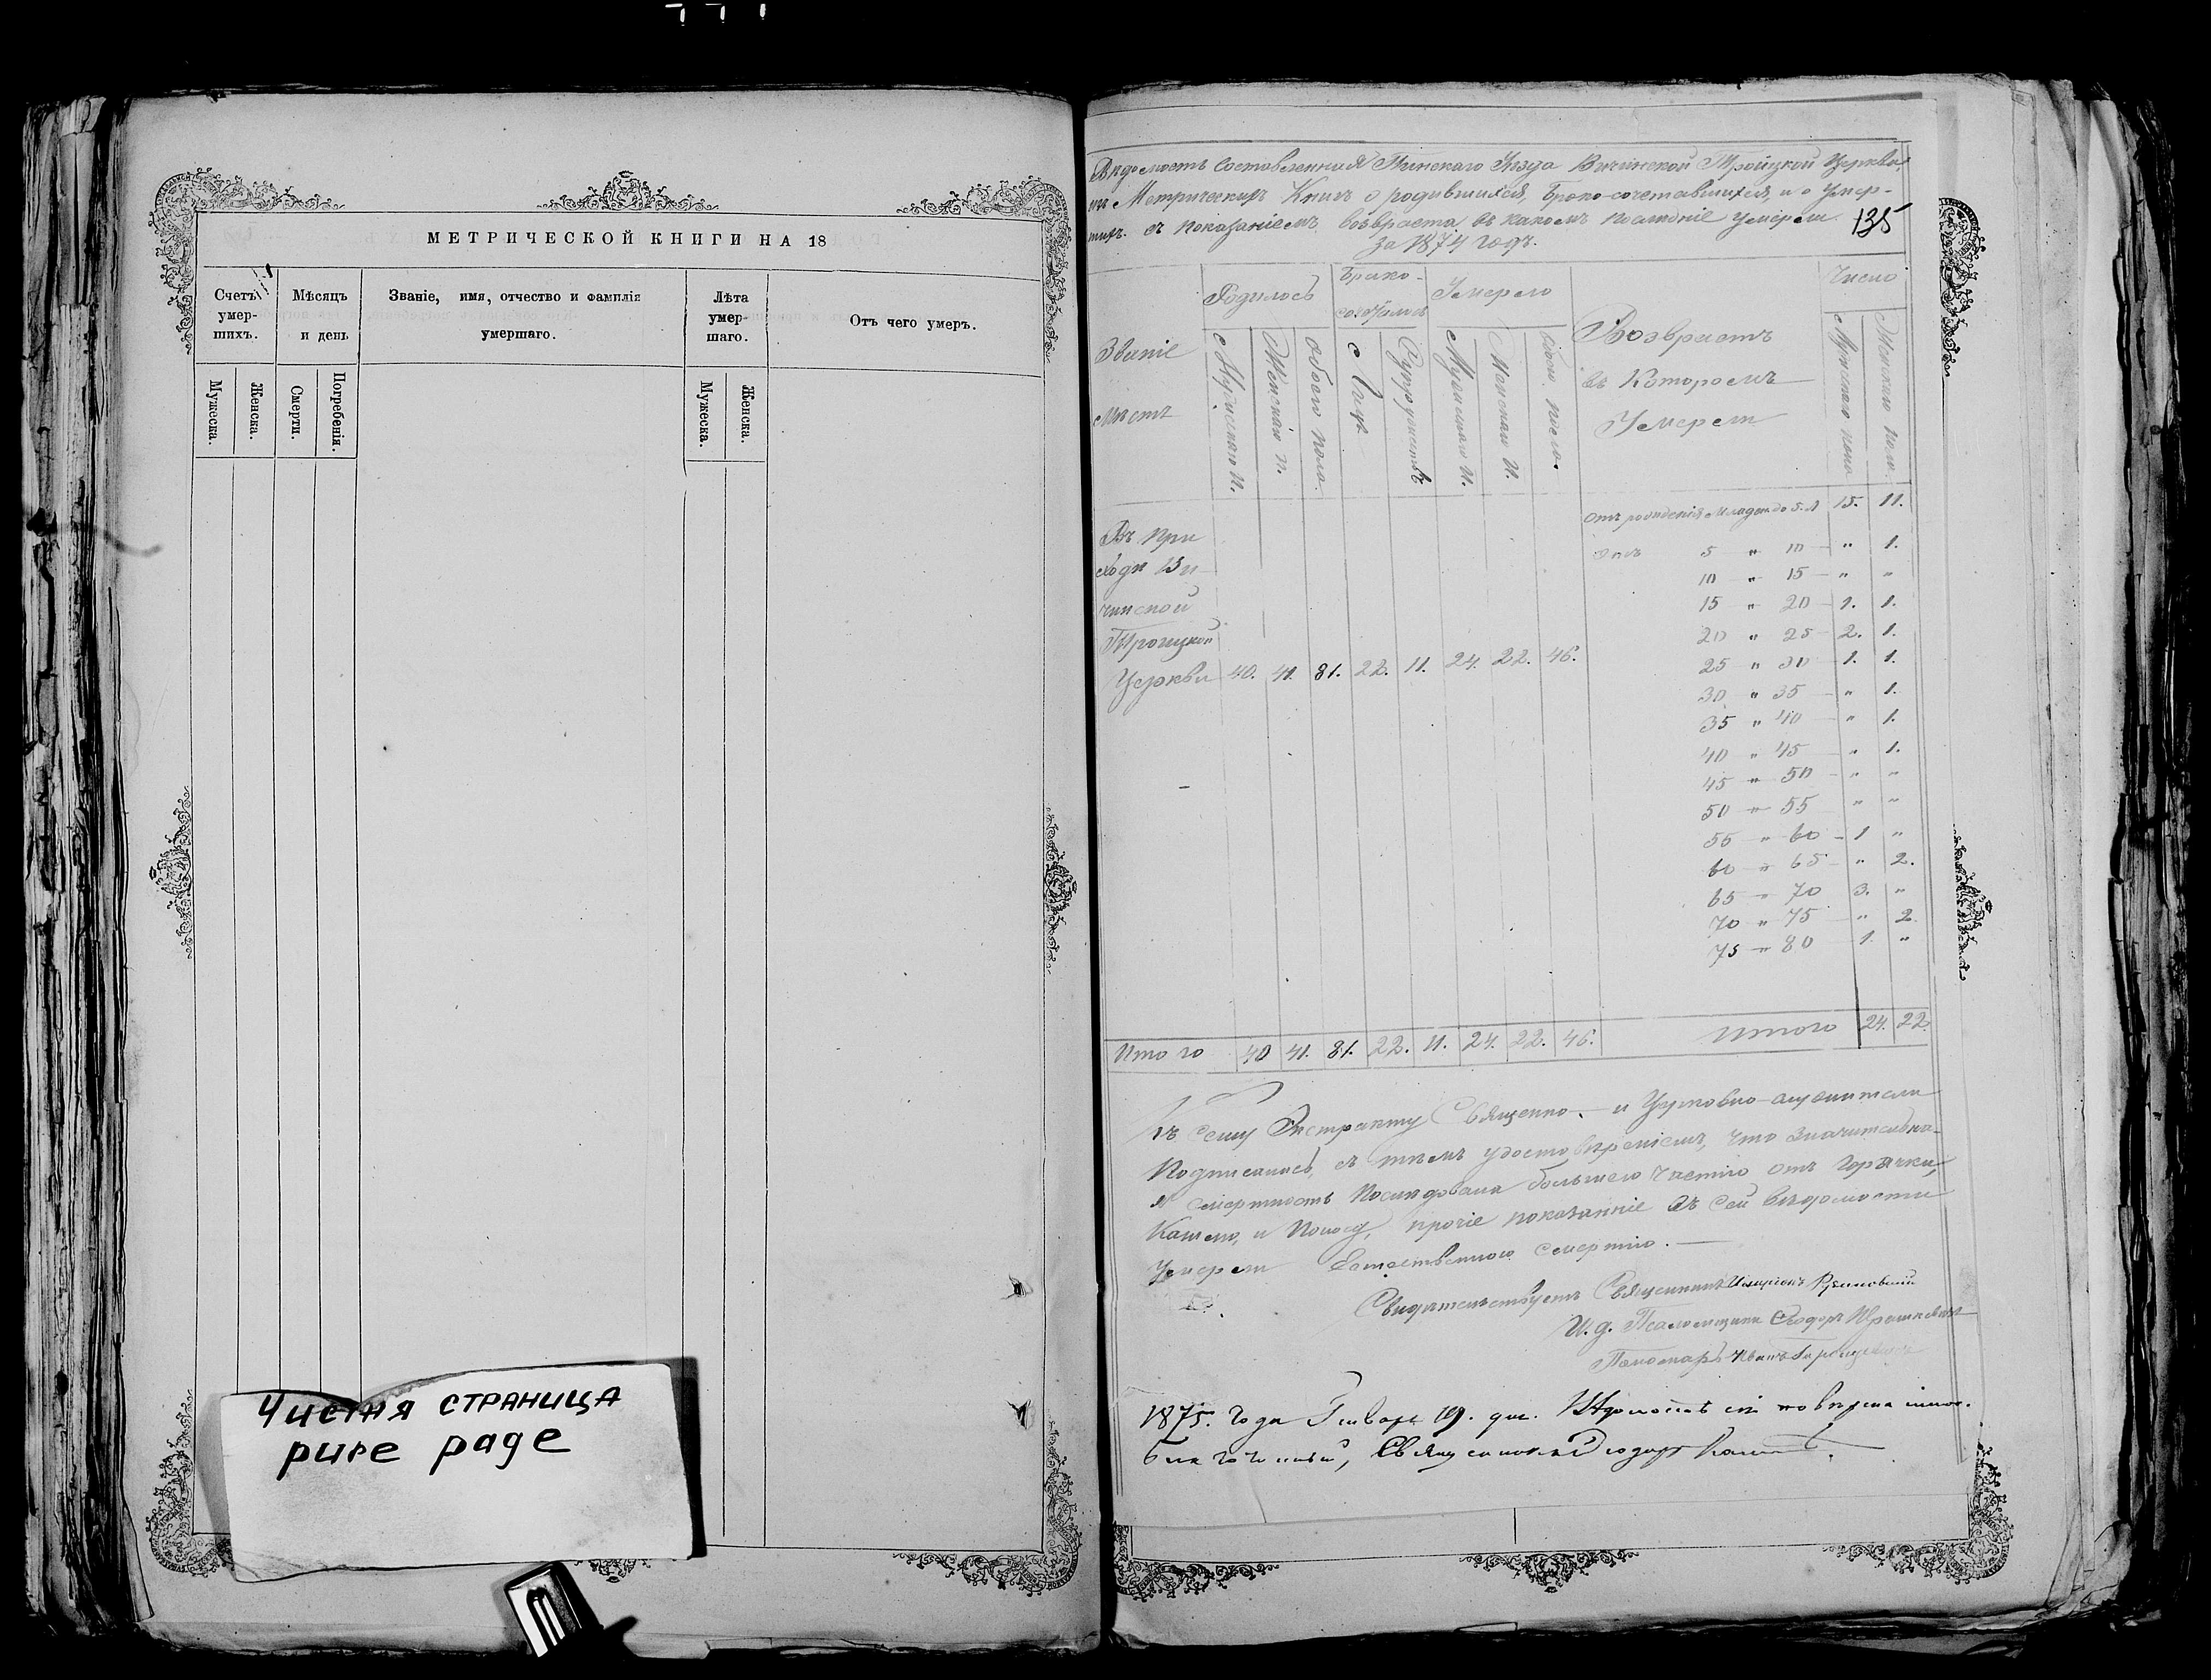 МЕТРИЧЕСКОЙ КНИГИ НА 18
Счетъ умер-шихъ.
Мѣсяцъ и день
Званіе, имя, отчество и фамилія умершаго.
Лѣта умер-шаго.
Отъ чего умеръ.
Мужеска.
Женска.
Смерти.
Погребенія.
Мужеска.
Женска.
Чистая страница
pure page
Вѣдомость составленная Пинскаго Уѣзда Вичинской Троицкой Церкви,
Метрическихъ Книгъ о родившихся, брако-сочетавшихся, и о Умер-
шихъ. съ показаніемъ возвраста въ какомъ послѣдніе умерли
за 1874 годъ.
135
Званіе мѣстъ
Родилось
Брако-
Умерло
Возврастъ
въ Которомъ
Умерли
Число
Мужскаго п.
Женскаго п.
обоего пола.
Лицъ
Супружествъ
Мужескаго п.
Женскаго п.
обоего пола.
Мужскаго пола
Женскаго пола.
Въ При
ходѣ Ви
чинской
Троицкой
Церкви 40. 41. 81. 22. 11. 24. 22. 46.
отъ рожденія младен до 5. л 15. 11.
отъ 5 " 10 " 1.
10 " 15 " "
15 " 20 1. 1.
20 " 25 2. 1.
25 " 30 1. 1.
30 " 35 " 1.
35 " 40 " 1.
40 " 45 " 1.
45 " 50 " "
50 " 55 " "
55 " 60 1 "
60 " 65 " 2.
65 " 70 3. "
70 " 75 " 2
75 " 80 1. "
Итого 40 41. 81. 22. 11. 24. 22. 46. Итого 24. 22
Къ сему Экстракту Священно- и Церковно-служители
Подписались, съ тѣмъ удостовѣреніемъ, что значительна-
я смертность послѣдовала большею частію отъ горячки,
Кашлю, и Поносу, прочіе показанніе въ сей вѣдомости
умерли Естественною смертію.
Свидѣтельствуетъ Священникъ
И. д. Псаломщика Ѳеодоръ
Пономарь Иванъ
1875. года Января 19. дня. Вѣдомость сія повѣрена мною.
Благочинный, Священникъ Ѳеодоръ